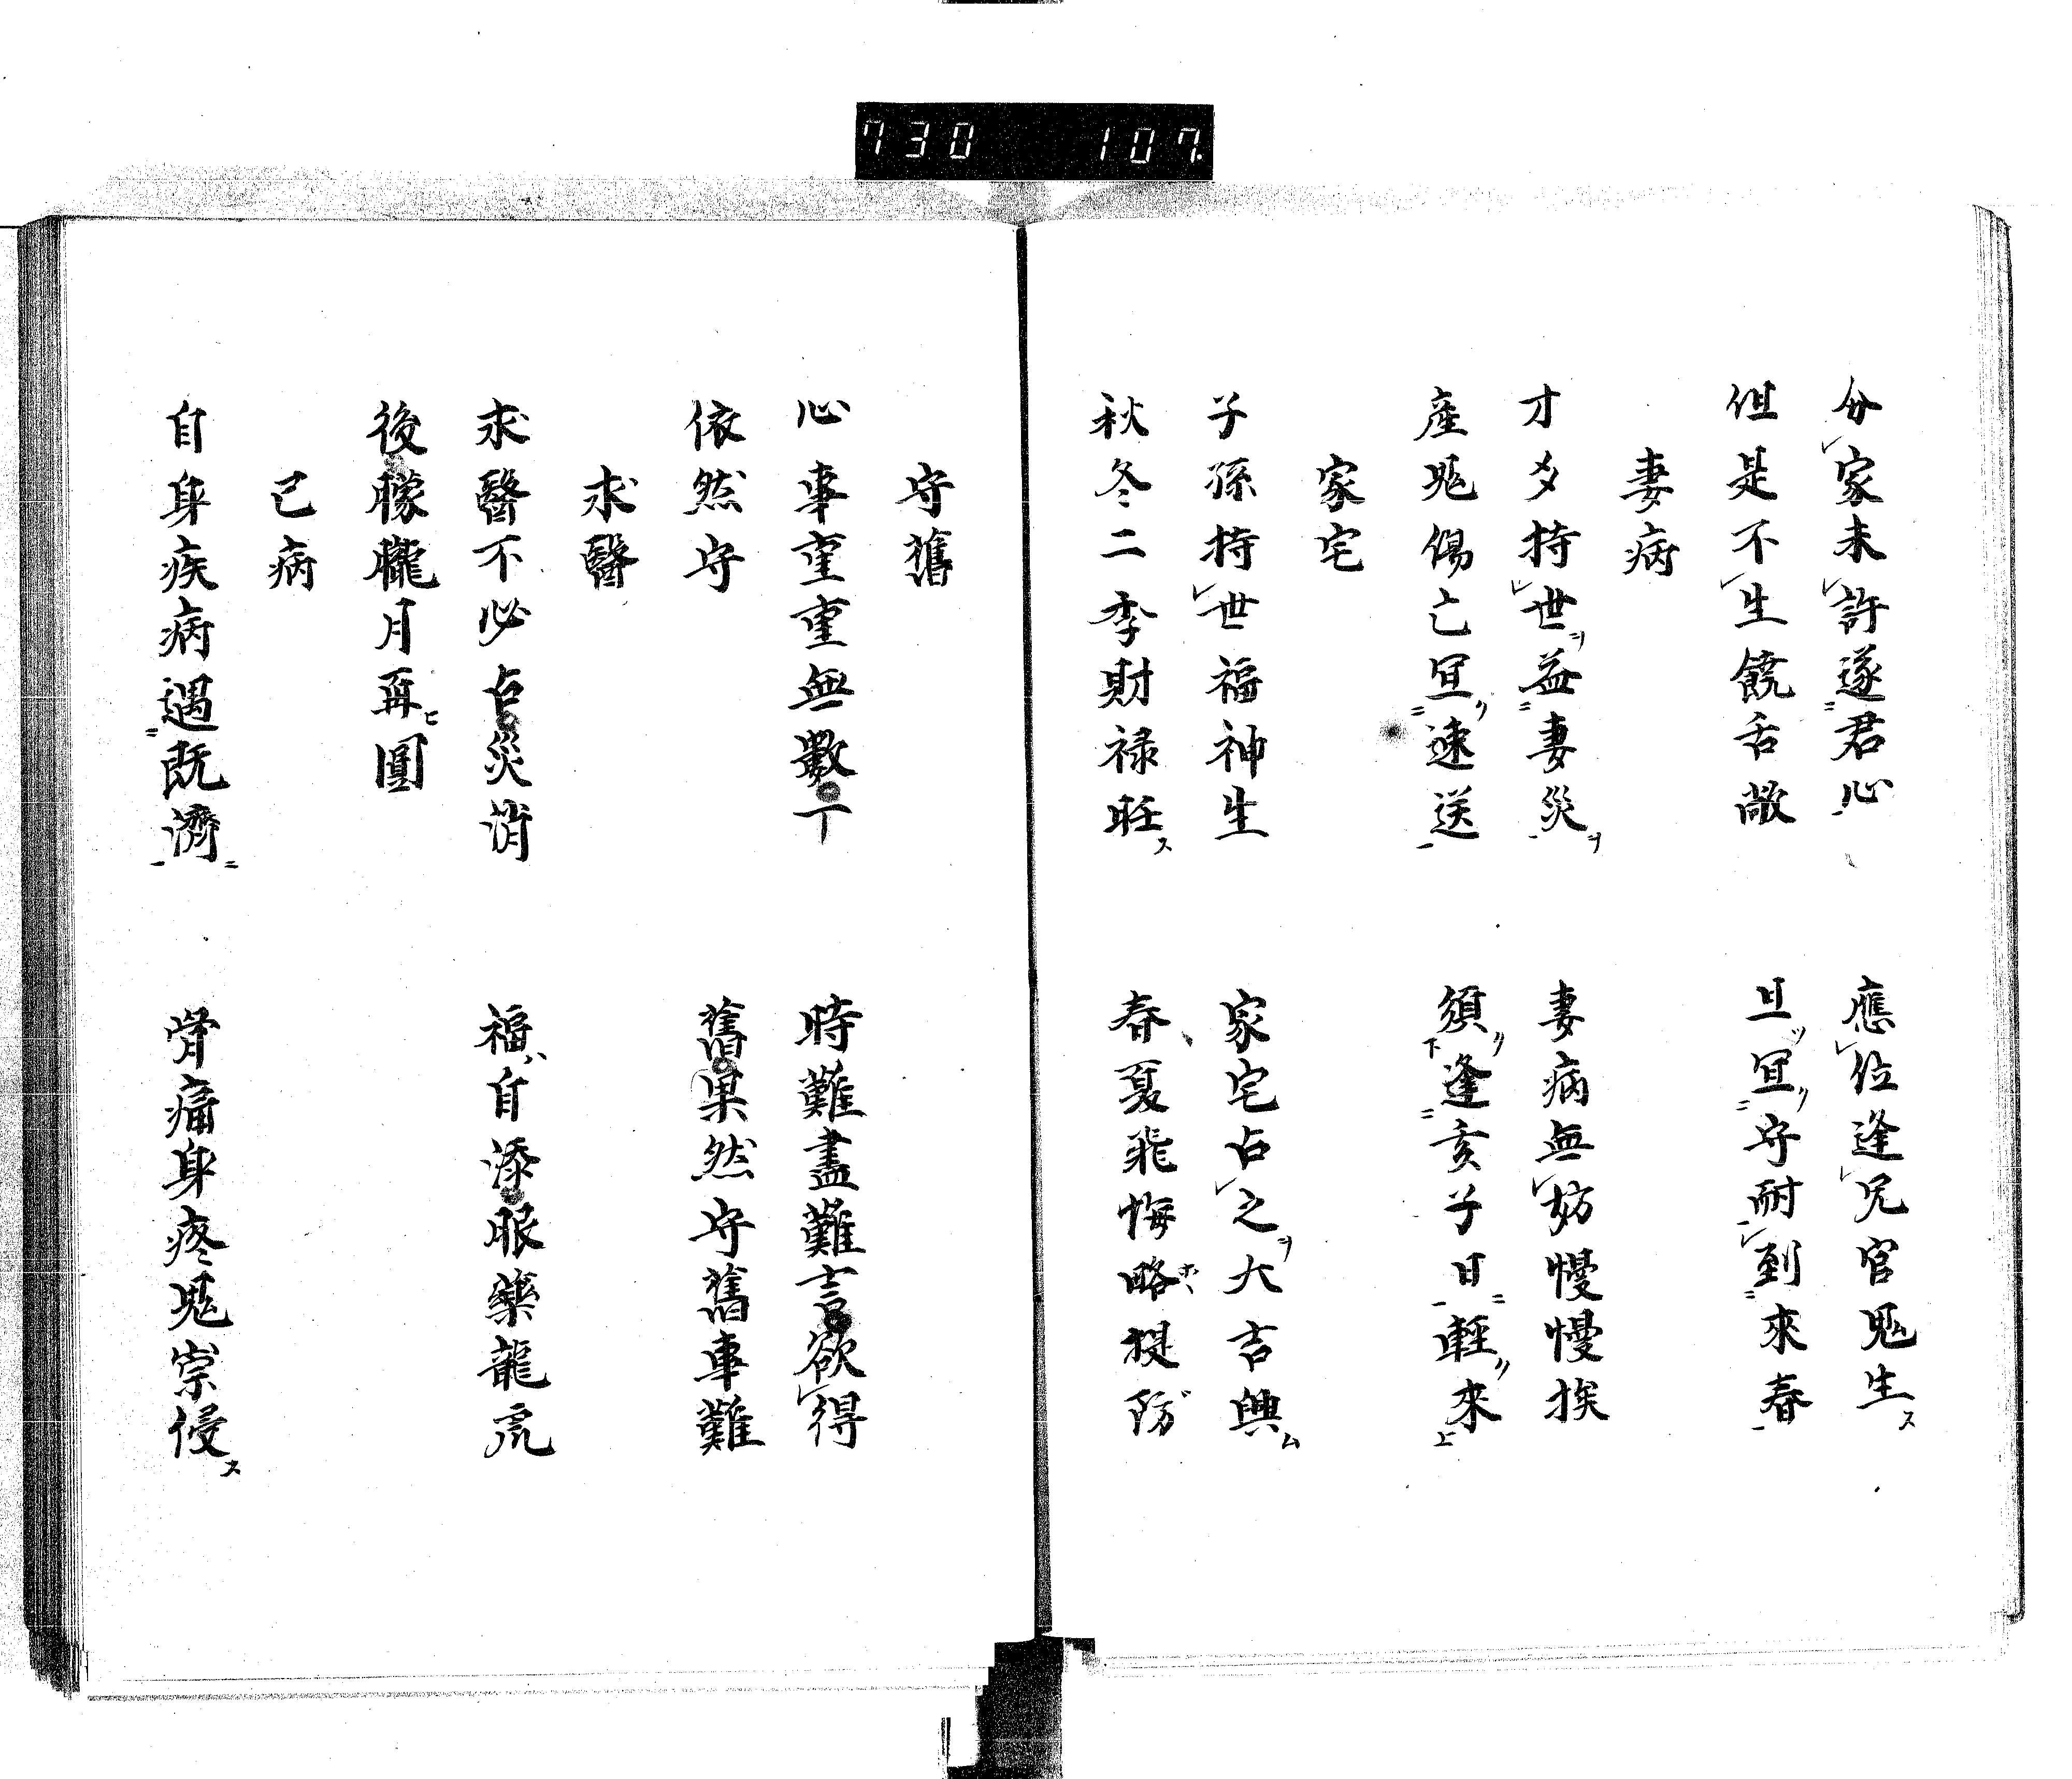 730 107.
分家未許遂君心 應位逢兄官鬼生ス
但是不生饒舌敵 且宜守耐到來春
妻病
才爻持世益妻災 妻病無妨慢慢挨
産鬼傷亡宜速送 須逢亥子日輕來
家宅
子孫持世福神生 家宅占之大吉興ム
秋冬二季財禄旺ス 春夏飛悔略提防
守舊
心事重重無數丁 時難盡難言欲得
依然守 舊果然守舊事難
求醫
求醫不必占災消 福ハ自添眼藥龍虎
後朦朧月再ヒ圓
己病
自身疾病遇既濟ニ 骨痛身疼鬼祟侵ス